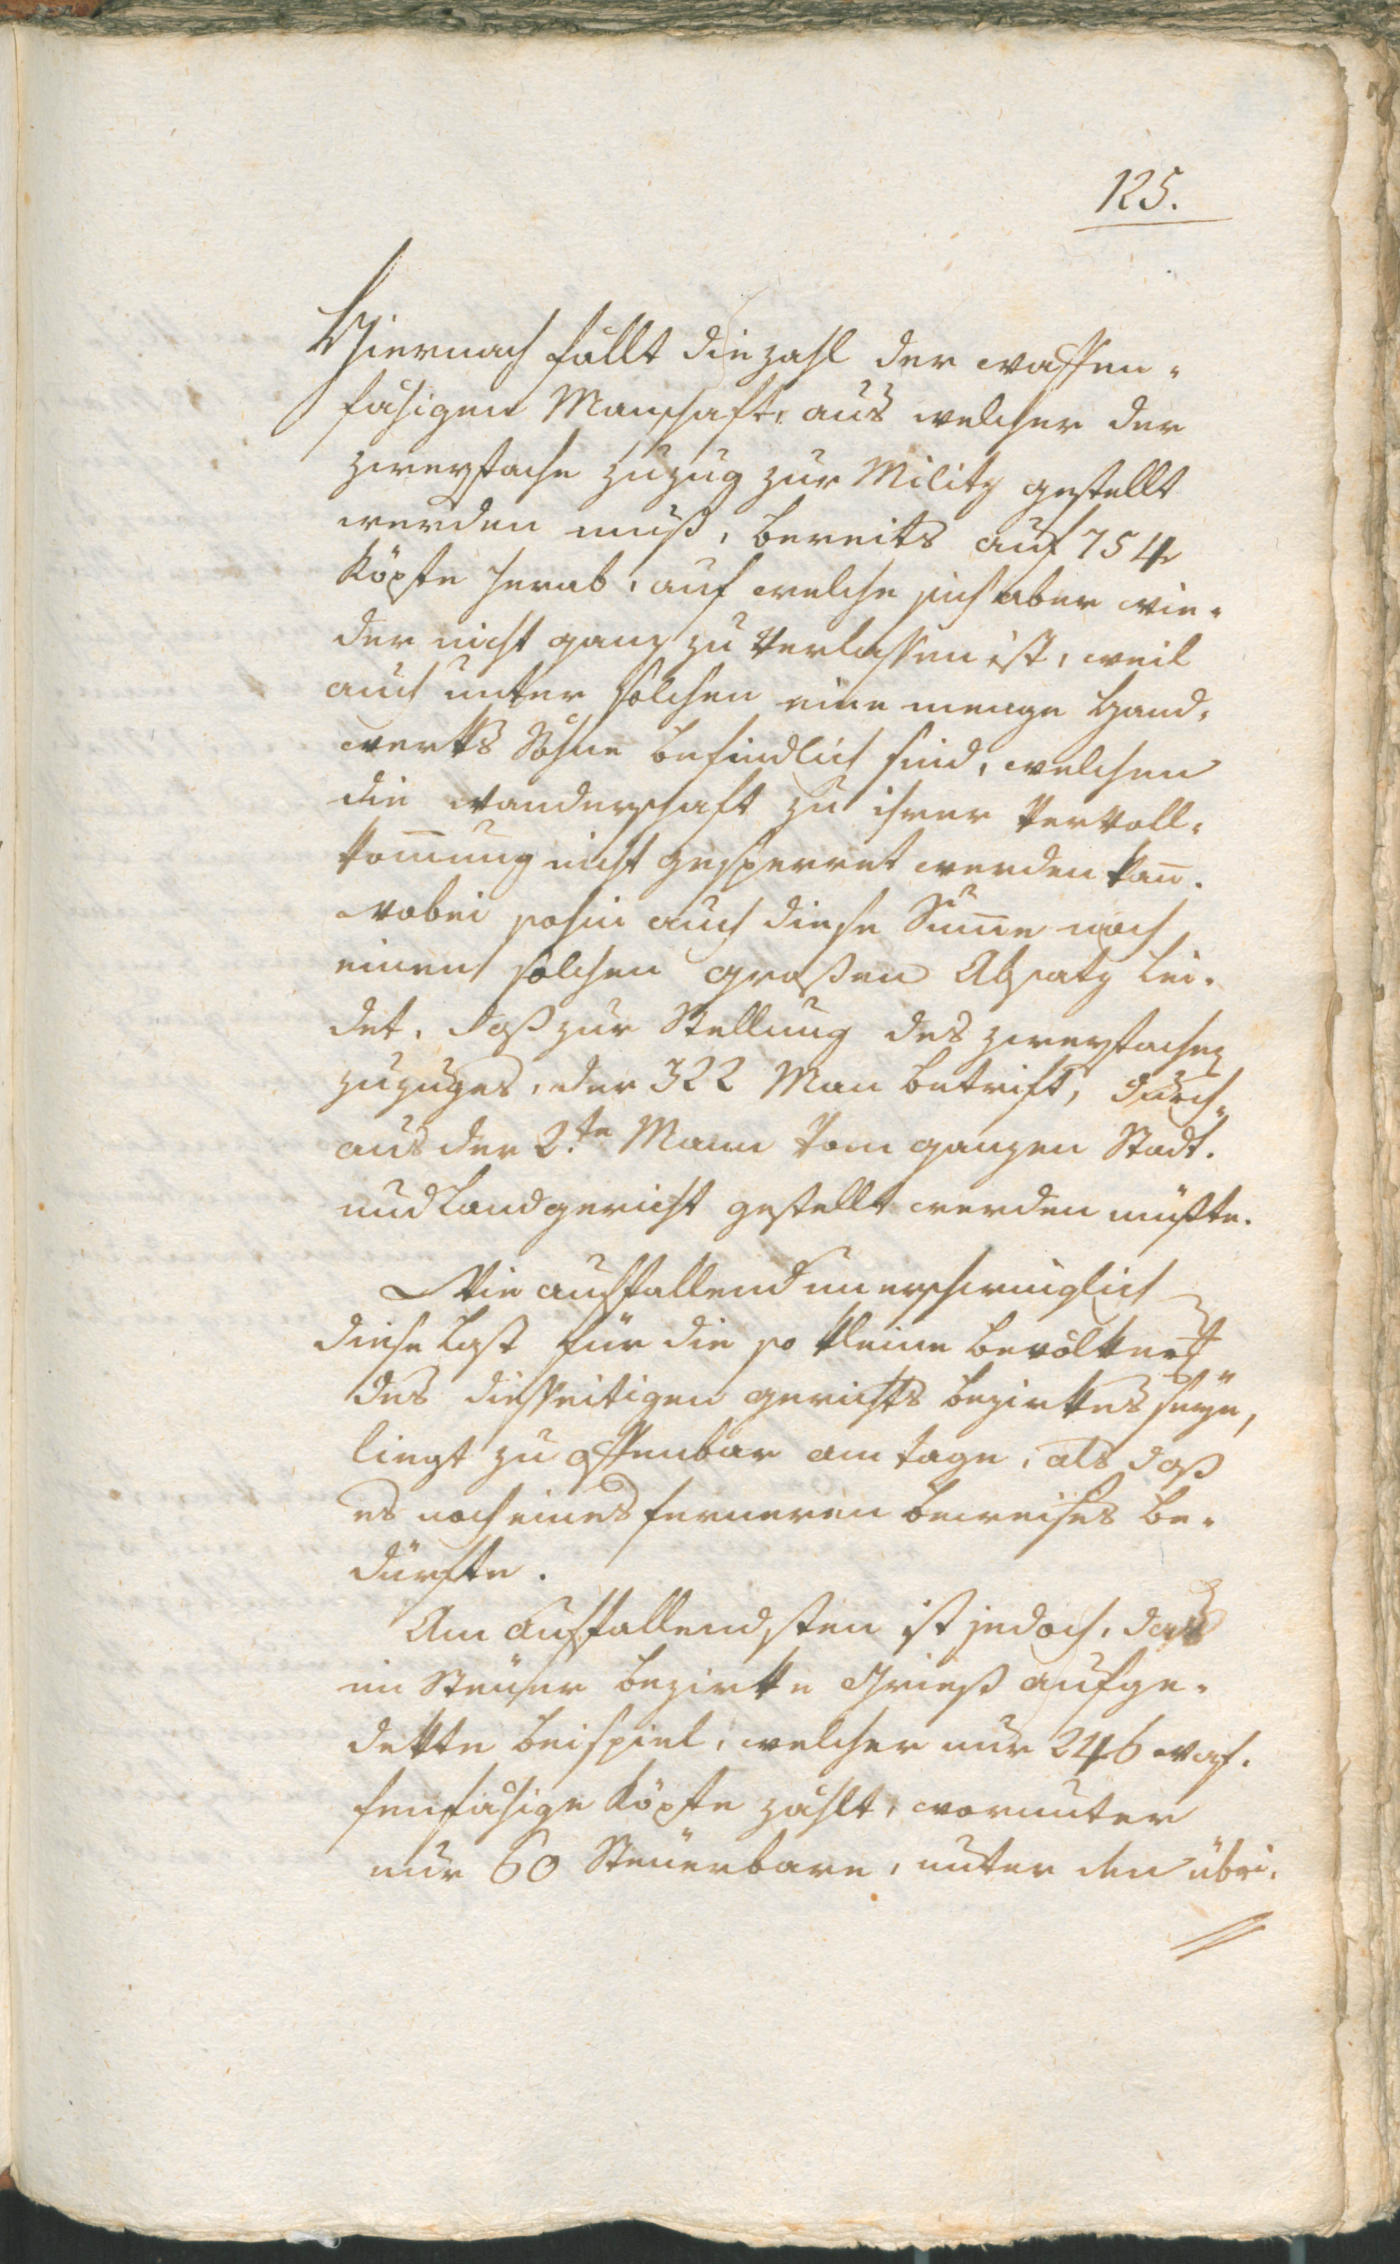 125.
Hiernach fällt die zahl der waffen-
fähigen Manschaft, aus welcher der
zweyfache zuzug zur Militz gestellt
werden muß, bereits auf 754
Köpfe herab, auf welche sich aber wie-
der nicht ganz zu verlassen ist, weil
auch unter solchen eine menge Hand-
werks Söhne befindlich sind, welchen
die wanderschaft zu ihrer vervoll-
kom̄nung nicht gesperret werden kan̄.
wobei sohin auch diese Sum̄e noch
einen solchen großen Absatz lei-
det, daß zur Stellung des zweyfachen
zuzuges, der 322 Man betrift, durch-
aus der 2.te Mann vom ganzen Stadt-
und Landgericht gestellt werden müßte.
Wie auffallend unerschwinglich
diese Last für die so kleine bevölkerg
des diesseitigen gerichts bezirkes seÿe,
liegt zu offenbar am tage, als daß
es noch eines ferneren beweises be-
dürfte.
Am auffallendsten ist jedoch, das
im Steuer bezirke Grieß aufge-
dekte beispiel, welcher nur 246 waf-
fenfähige Köpfe zählt, worunter
nur 60 Steuerbare, unter den übri-